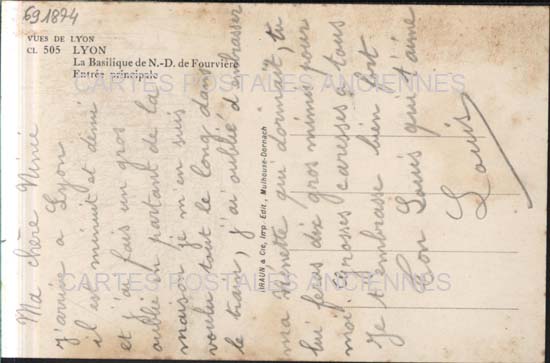 691874
VUES DE LYON
CL 505 LYON
La Basilique de N.-D. de Fourvière
Entrée principale
CARTES POSTALES ANCIENNES
CARTES POSTALES ANCIENNES
BRAUN & Cie, Imp. Edit., Mulhouse-Dornach
Ma chère Ninie
J'arrive à Lyon
il est minuit et demi
et j'ai fais un gros
oublié en partant de la
mais, je m'en suis
voulu tout le long dans
le train, j'ai oublié d'embrasser
ma Ninette qui dormait, tu
lui feras dix gros mimis pour
moi. Grosses caresses à tous
Je t'embrasse bien fort
Ton Louis qui t'aime
Louis